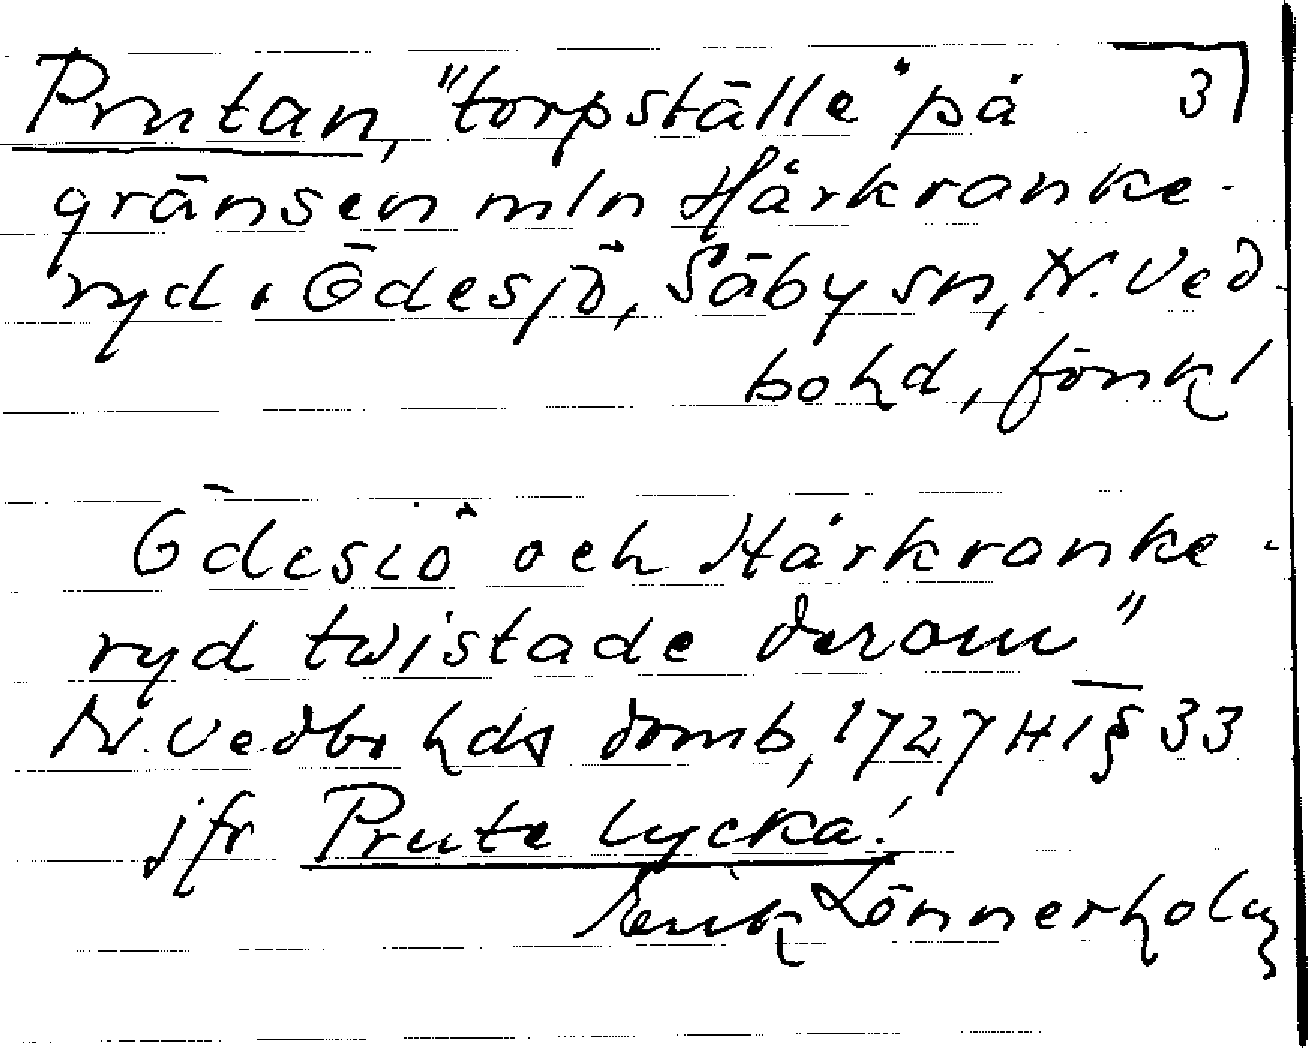 Prutan, "torpställe" på 3
gränsen mln Hårkranke-
ryd o. Ödesjö, Säby sn, N. Ved-
bo hd, Jönk l
Ödesiö och Hårkranke-
ryd twistade derom"
N. Vedbo hds domb, 1727 HT § 33
jfr Prute lycka!
Erik Lönnerholm